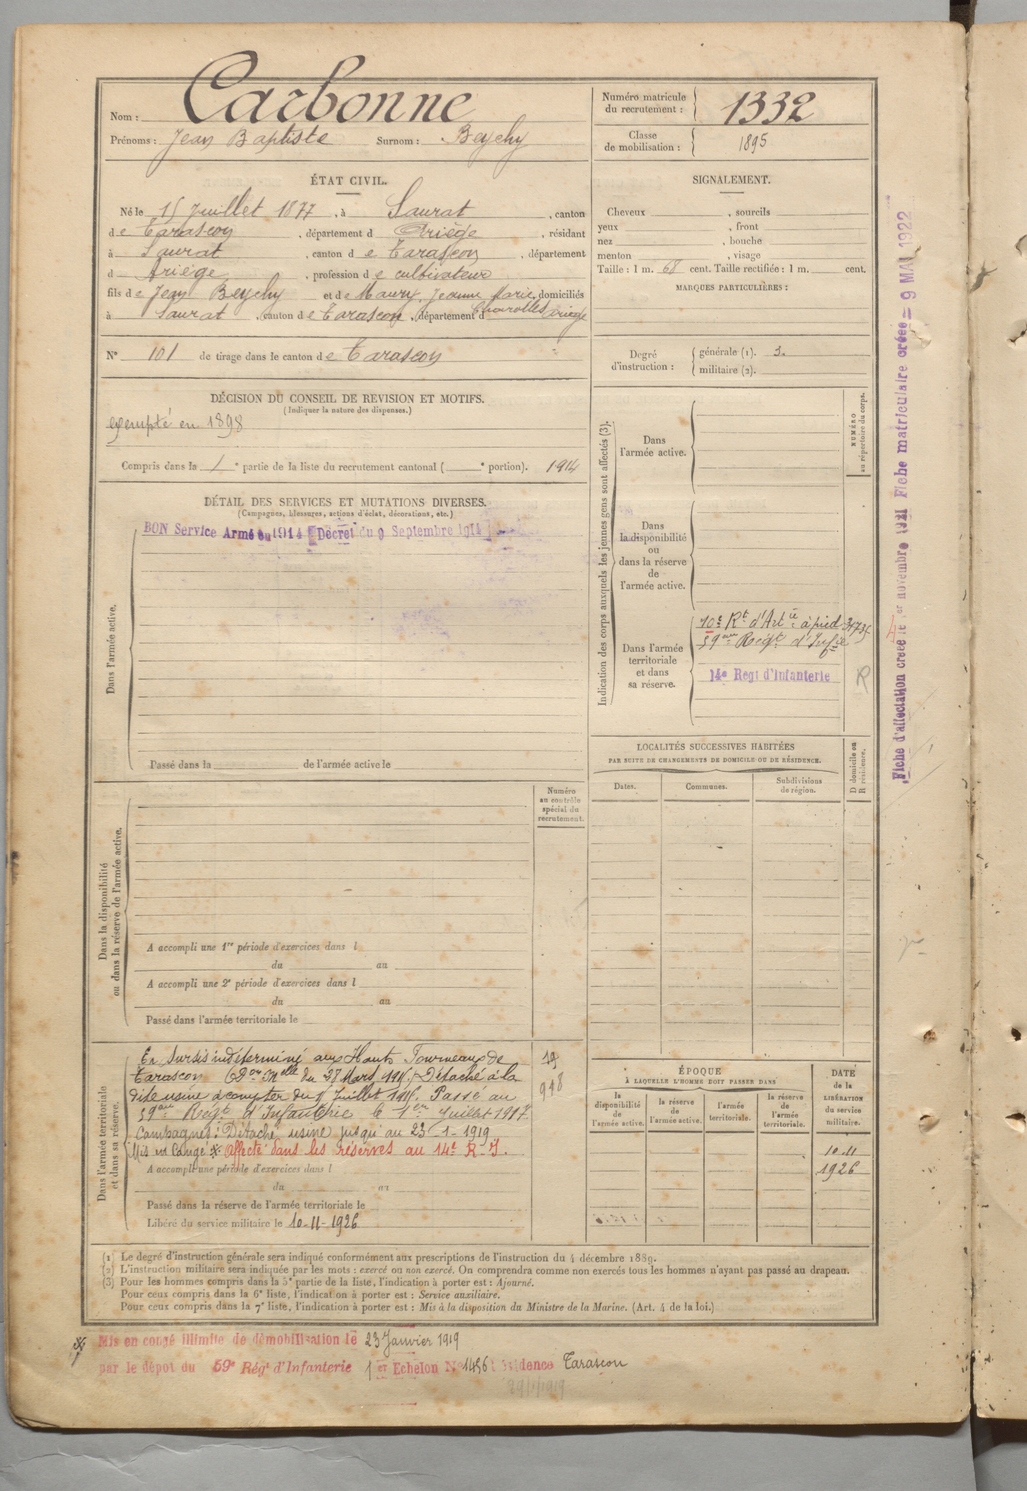 Nom : Carbonne
Prénoms : Jean Baptiste Surnom : Beychy
Numéro matricule du recrutement : 1332
Classe de mobilisation : 1895
ÉTAT CIVIL.
Né le 15 Juillet 1877, à Saurat, canton
de Tarascon, département d Ariège, résidant
à Saurat, canton de Tarascon, département
d Ariège, profession de cultivateur
fils de Jean Beychy et de Maury, Jeanne Marie, domiciliés
à Saurat, canton de Tarascon, département d Ariège
N° 101 de tirage dans le canton de Tarascon
SIGNALEMENT.
Cheveux , sourcils
yeux , front
nez , bouche
menton , visage
Taille : 1 m. 68 cent. Taille rectifiée : 1 m. cent.
MARQUES PARTICULIÈRES :
Degré d'instruction : générale (1). 3.
militaire (2).
DÉCISION DU CONSEIL DE REVISION ET MOTIFS.
(Indiquer la nature des dispenses.)
exempté en 1898
Compris dans la 1e partie de la liste du recrutement cantonal ( e portion). 1914
DÉTAIL DES SERVICES ET MUTATIONS DIVERSES.
(Campagnes, blessures, actions d'éclat, décorations, etc.)
BON Service Armé en 1914 Décret du 9 Septembre 1914
Dans l'armée active.
Passé dans la de l'armée active le
Indication des corps auxquels les jeunes gens sont affectés (3).
NUMÉRO au répertoire du corps.
Dans l'armée active.
Dans la disponibilité ou dans la réserve de l'armée active.
Dans l'armée territoriale et dans sa réserve.
10e Rt d'Artie à pied
59eme Régt d'Infie
14e Regt d'Infanterie
R
LOCALITÉS SUCCESSIVES HABITÉES
PAR SUITE DE CHANGEMENTS DE DOMICILE OU DE RÉSIDENCE.
Dates. Communes. Subdivisions de région.
D domicile ou R résidence.
Dans la disponibilité ou dans la réserve de l'armée active.
Numéro au contrôle spécial du recrutement.
A accompli une 1re période d'exercices dans l
du au
A accompli une 2e période d'exercices dans l
du au
Passé dans l'armée territoriale le
Dans l'armée territoriale et dans sa réserve.
En sursis indéterminé aux Hauts Fourneaux de
Tarascon Don Mlle du 28 Mars 1915. Détaché à la
dite usine à compter du Juillet 1915. Passé au
59eme Régt d'Infanterie le 1er Juillet 1917.
Campagnes : Détaché usine jusqu'au 23-1-1919
Mis en Congé Affecté dans les réserves au 14e R.I.
A accompli une période d'exercices dans l
du au
Passé dans la réserve de l'armée territoriale le
Libéré du service militaire le 10-11-1926
ÉPOQUE
À LAQUELLE L'HOMME DOIT PASSER DANS
la disponibilité de l'armée active.
la réserve de l'armée active.
l'armée territoriale.
la réserve de l'armée territoriale.
DATE de la LIBÉRATION du service militaire.
10-11
1926
(1) Le degré d'instruction générale sera indiqué conformément aux prescriptions de l'instruction du 4 décembre 1889.
(2) L'instruction militaire sera indiquée par les mots : exercé ou non exercé. On comprendra comme non exercés tous les hommes n'ayant pas passé au drapeau.
(3) Pour les hommes compris dans la 5e partie de la liste, l'indication à porter est : Ajourné.
Pour ceux compris dans la 6e liste, l'indication à porter est : Service auxiliaire.
Pour ceux compris dans la 7e liste, l'indication à porter est : Mis à la disposition du Ministre de la Marine. (Art. 4 de la loi.)
Mis en congé illimité de démobilisation le 23 Janvier 1919
par le dépôt du 59e Régt d'Infanterie 1er Echelon N° 1436 Résidence Tarascon
Fiche d'affectation créée le 1er novembre 1921 Fiche matriculaire créée = 9 MAI 1922